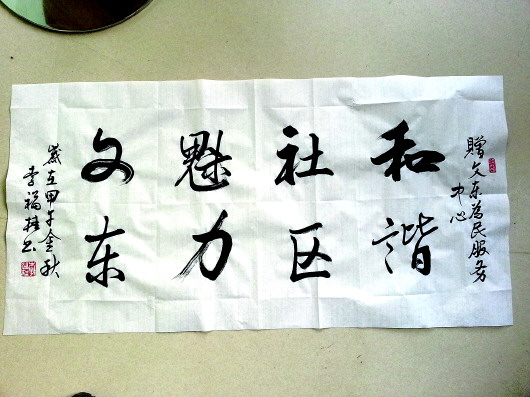 赠文东为民服务
中心
和谐
社区
魅力
文东
岁在甲午金秋
李福桂书